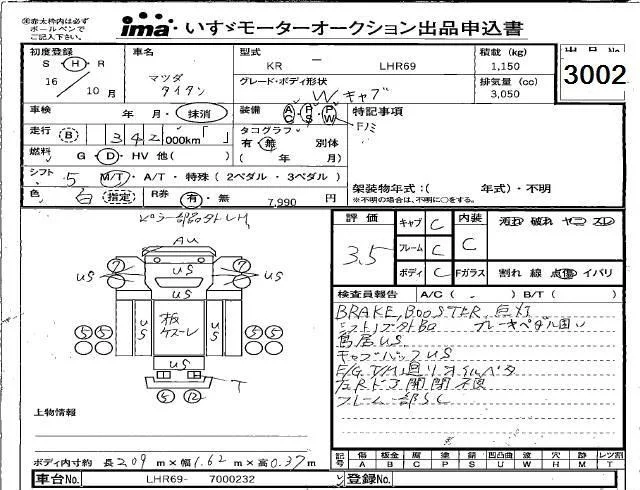 ※赤太枠内は必ず
ボールペンで
ご記入下さい。
ima いすゞモーターオークション出品申込書
初度登録 車名 型式 積載 (kg) 出品No
S H R マツダ KR LHR69 1,150 3002
16 / 10 月 タイタン グレード・ボディ形状 排気量 (cc)
Wキャブ 3,050
車検 年 月・抹消 装備 AC PS PW 特記事項
走行 B 342,000km タコグラフ Fノミ
有・無 別体
燃料 G・D・HV 他( ) ( 年 月)
シフト 5 M/T・A/T・特殊 (2ペダル・3ペダル) 架装物年式:( 年式)・不明
色 白 指定 R券 有・無 7,990 円 ※不明の場合は、不明に○をする。
ピラー部品外レ有
AU
7 US 7
US US
US
US 板 US
ケズーレ
5 5 5 5
US
T
5 12
評価 キャブ C 内装 汚れ 破れ ヤニ スレ
3.5 フレーム C C
ボディ C Fガラス 割れ 線 点傷 イバリ
検査員報告 A/C ( ) B/T ( )
BRAKE, BOOSTER 点灯
シフトノブ外品 ブレーキペダル固い
鳥居US
キャブバックUS
E/G T/M回りオイルベタ
左Rドア開閉不良
フレーム一部SC
上物情報
記号 傷 板金 腐 塗 錆 凹凸曲 波 穴 時 レツ割
A B C P S U W H M T
ボディ内寸約 長 2.09 m×幅 1.62 m×高 0.37 m
車台No. LHR69- 7000232 登録No.